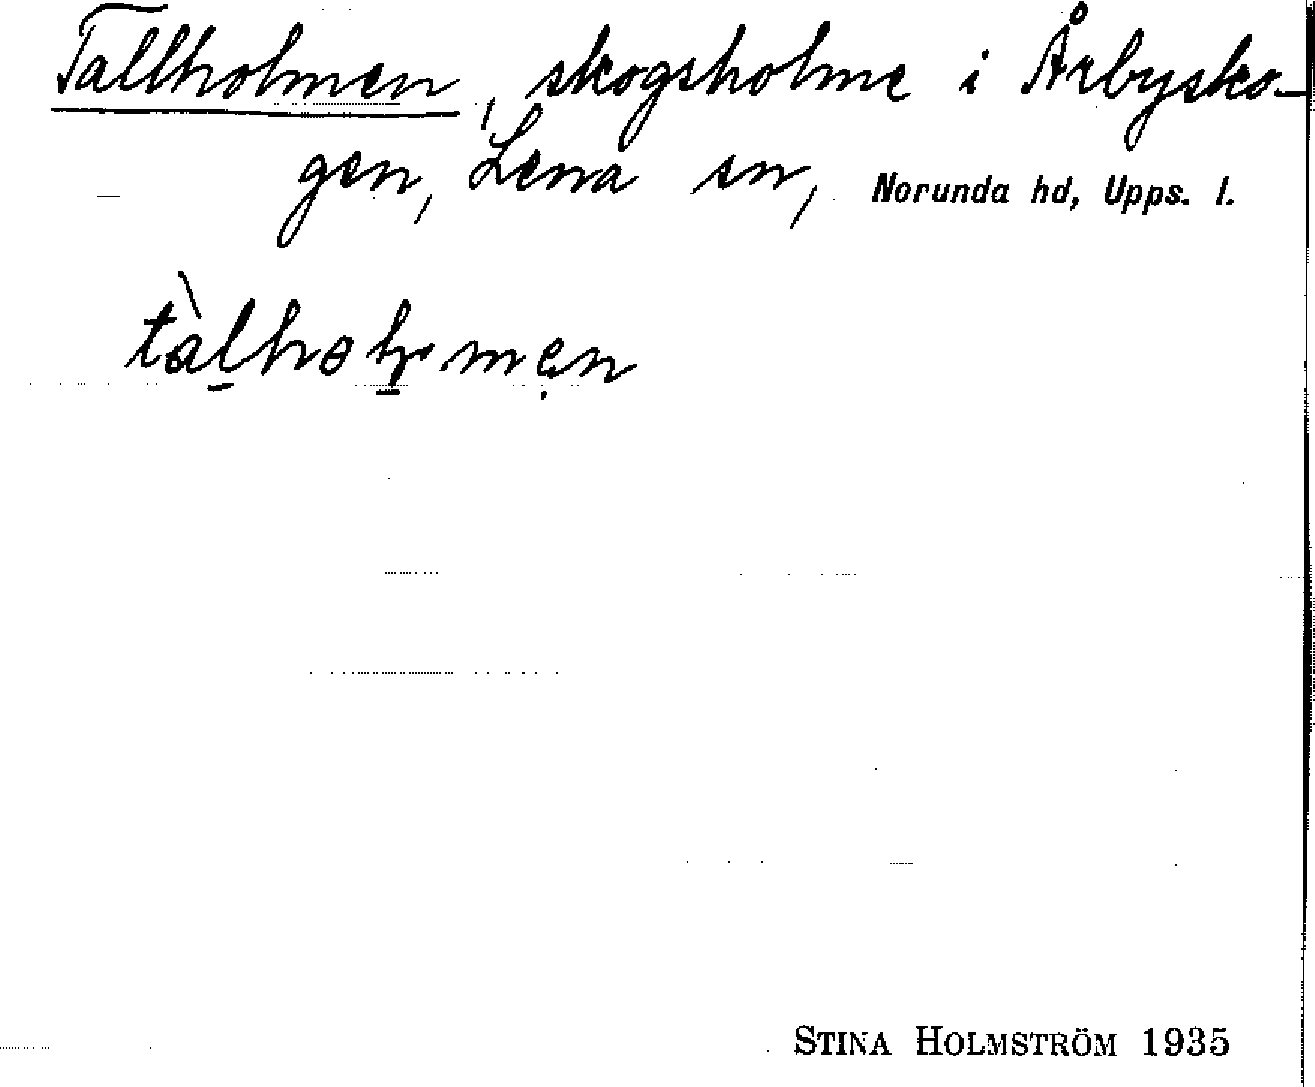 Tallholmen, skogsholme i Årbysko-
gen, Lena sn, Norunda hd, Upps. l.
STINA HOLMSTRÖM 1935